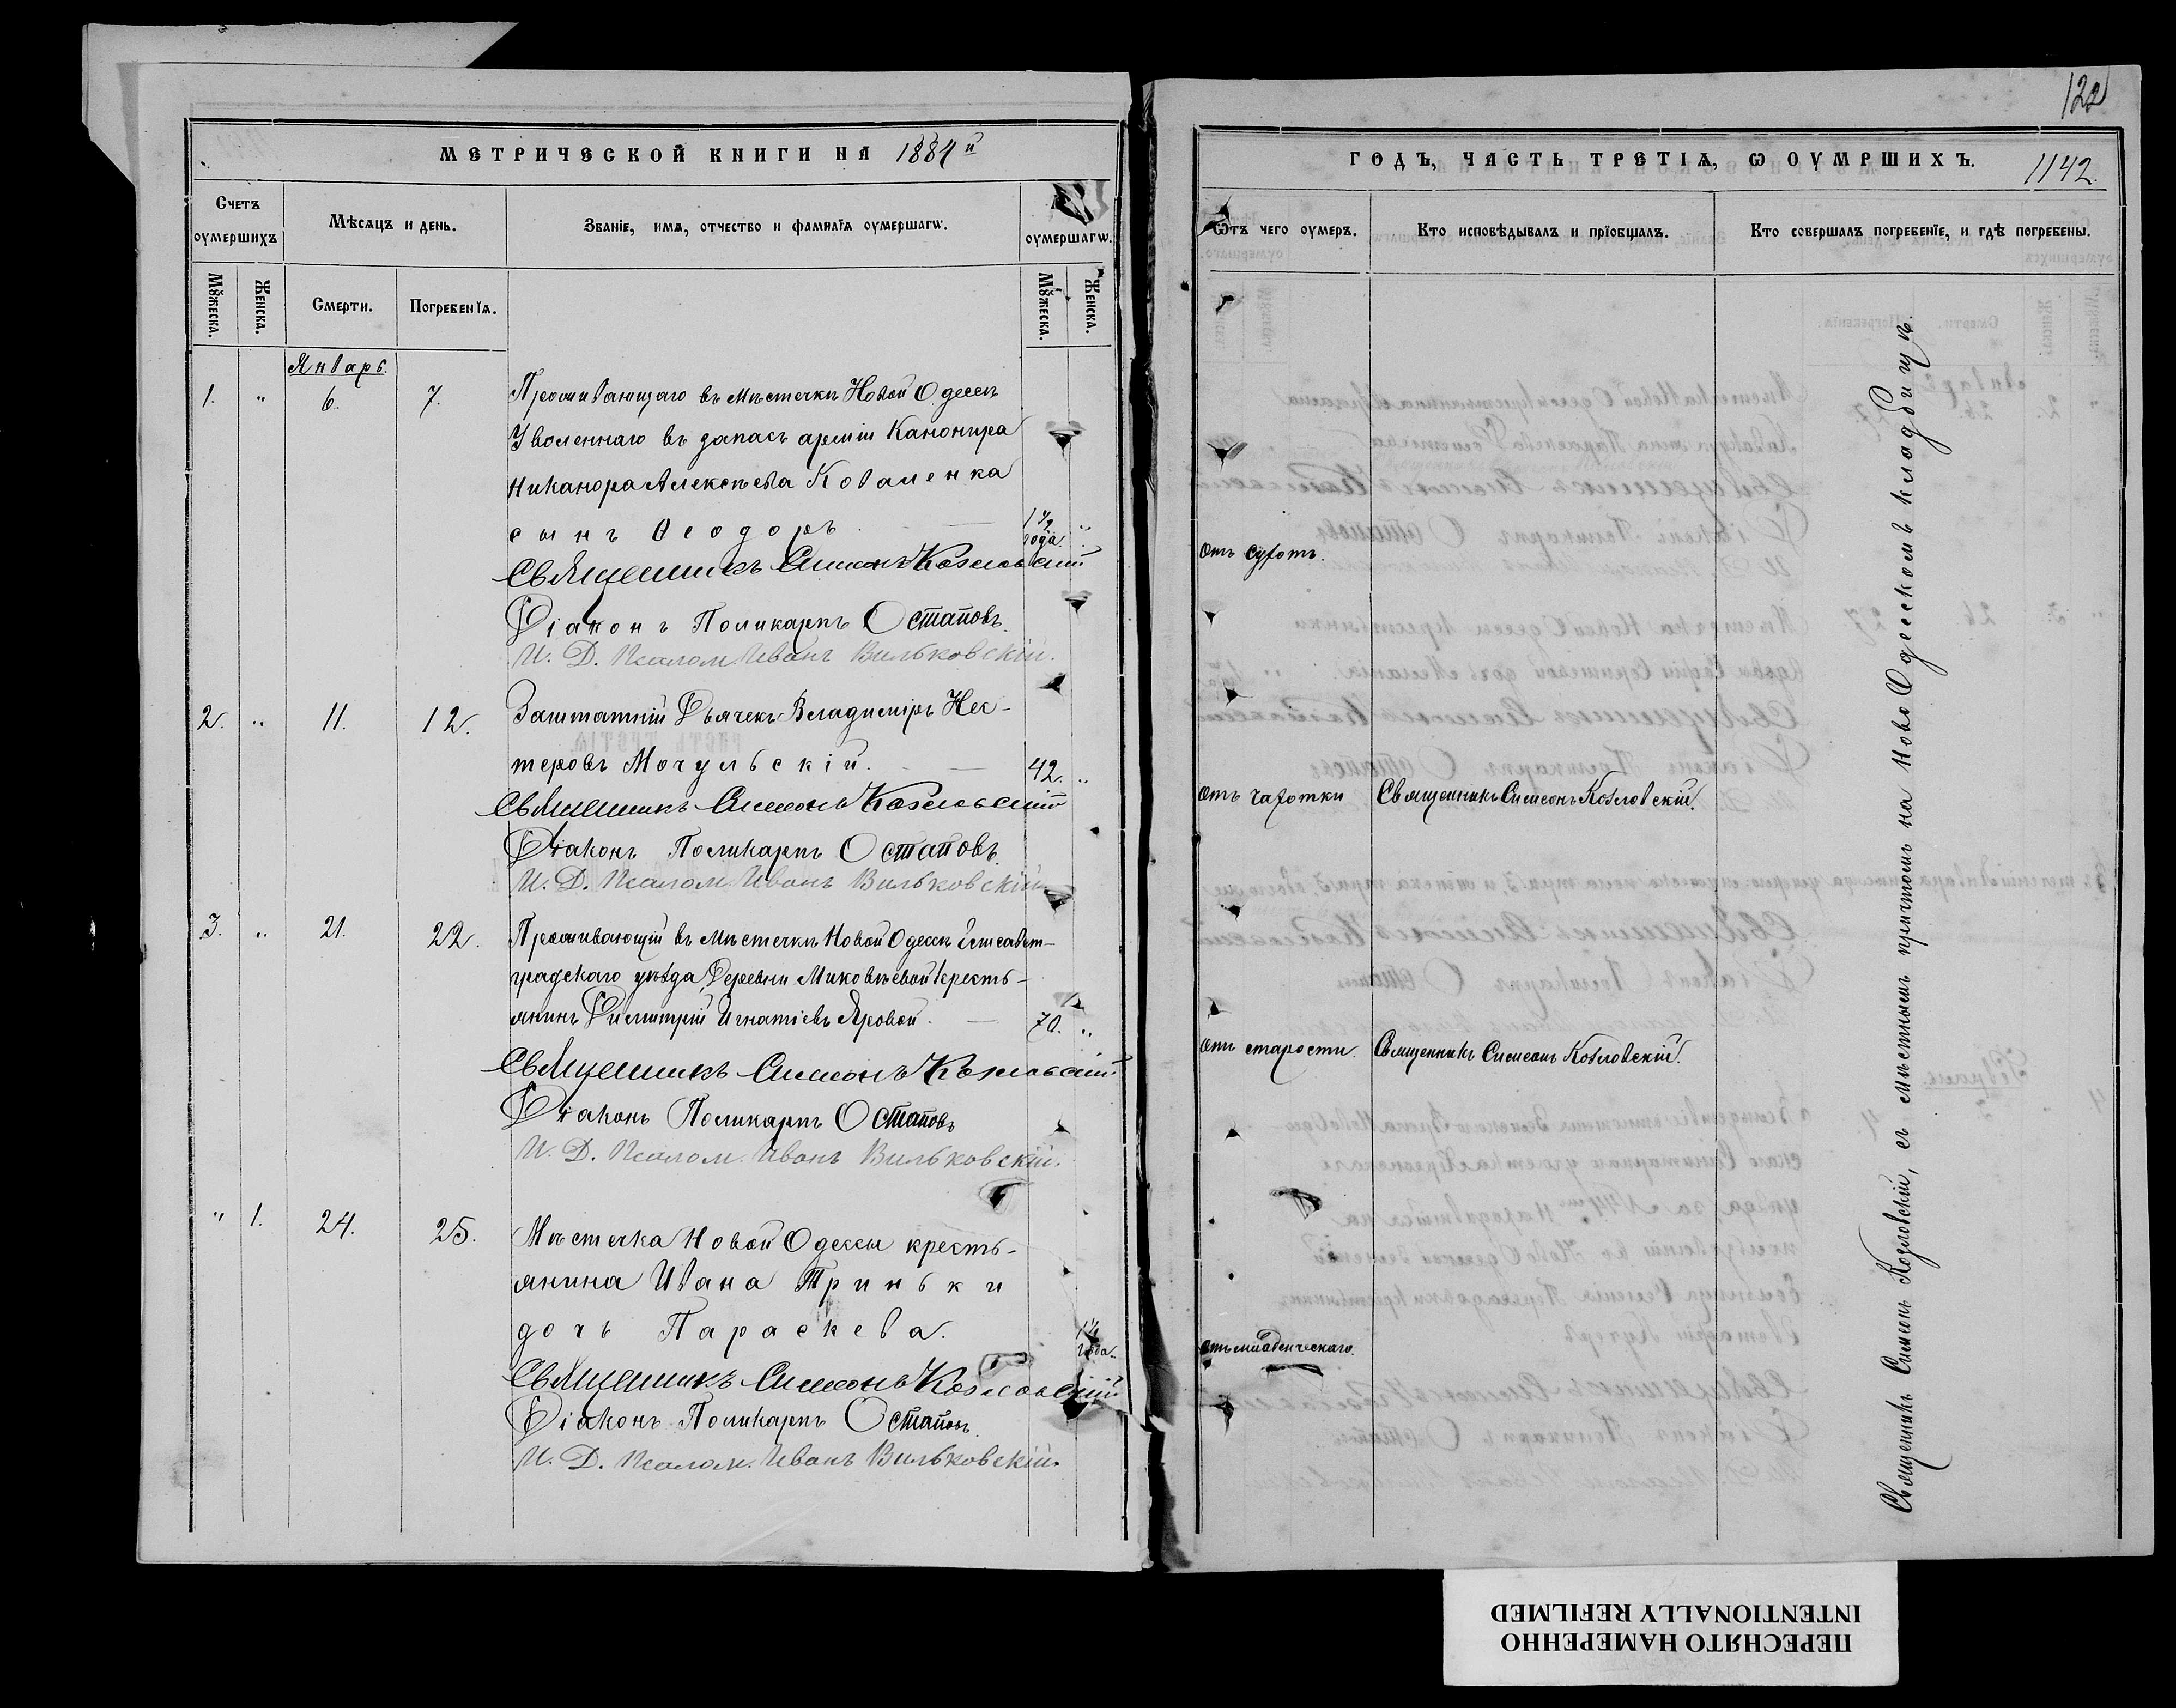 МЕТРИЧЕСКОЙ КНИГИ НА 1884й
Счетъ оумершихъ
Мѣсяцъ и день.
Званіе, имя, отчество и фамилія оумершагѡ.
оумершагѡ.
Мꙋжеска.
Женска.
Смерти.
Погребенія.
Мꙋжеска.
Женска.
Январь.
1. " 6. 7. Проживающаго въ мѣстечкѣ Новой Одессѣ
Уволеннаго въ запасъ арміи Канонира
Никанора Алексѣева Коваленка
сынъ Ѳеодоръ 1 1/2 года "
Священникъ Симеонъ Козловскій
Діаконъ Поликарпъ Остаповъ.
И. Д. Псалом. Иванъ Вильковскій.
2. " 11. 12. Заштатній Дьячекъ Владиміръ Нес-
теровъ Мочульскій. 42. "
Священникъ Симеонъ Козловскій
Діаконъ Поликарпъ Остаповъ.
И. Д. Псалом. Иванъ Вильковскій.
3. " 21. 22. Проживающій въ мѣстечкѣ Новой Одессѣ Елисавет-
градскаго уѣзда Деревни кресть-
янинъ Димитрій Игнатіевъ Яровой. 70. "
Священникъ Симеонъ Козловскій
Діаконъ Поликарпъ Остаповъ
И. Д. Псалом. Иванъ Вильковскій.
" 1. 24. 25. Мѣстечка Новой Одессы кресть-
янина Ивана Триньки
дочь Параскева. года
Священникъ Симеонъ Козловскій
Діаконъ Поликарпъ Остаповъ.
И. Д. Псалом. Иванъ Вильковскій.
122
ГОДЪ, ЧАСТЬ ТРЕТІА, Ѡ ОУМРШИХЪ. 1142.
Ѿтъ чего оумеръ.
Кто исповѣдывалъ и прїобщалъ.
Кто совершалъ погребенїе, и гдѣ погребены.
отъ сухотъ.
отъ чахотки Священникъ Симеонъ Козловскій.
отъ старости. Священникъ Симеонъ Козловскій.
отъ младенческаго.
Священникъ Симеонъ Козловскій, съ мѣстнымъ причтомъ на Ново Одесскомъ кладбищѣ.
ПЕРЕСНЯТО НАМЕРЕННО
INTENTIONALLY REFILMED